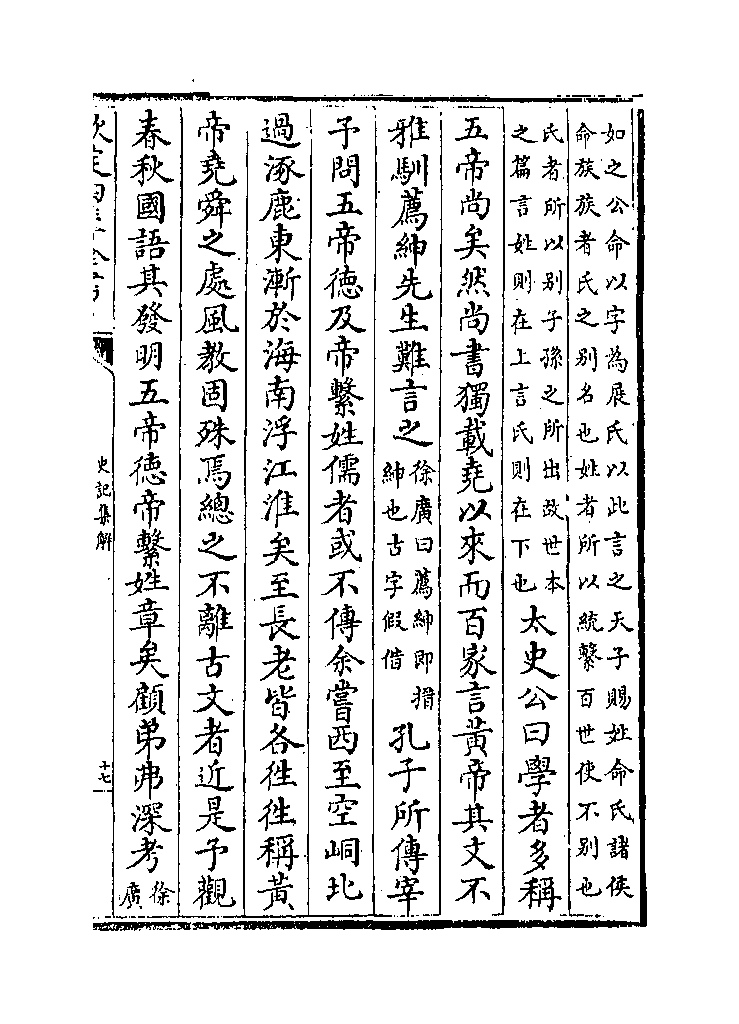 如之公命以字為展氏以此言之天子賜姓命氏諸侯
命族族者氏之别名也姓者所以統繫百世使不别也
氏者所以别子孫之所出故世本
之篇言姓則在上言氏則在下也
太史公曰學者多稱
五帝尚矣然尚書獨載堯以來而百家言黄帝其文不
雅馴薦紳先生難言之
徐廣曰薦紳即搢
紳也古字假借
孔子所傳宰
予問五帝徳及帝繫姓儒者或不傳余嘗西至空峒北
過涿鹿東漸於海南浮江淮矣至長老皆各徃徃稱黄
帝堯舜之處風教固殊焉總之不離古文者近是予觀
春秋國語其發明五帝徳帝繫姓章矣顧弟弗深考
徐
廣
史記集解
十七